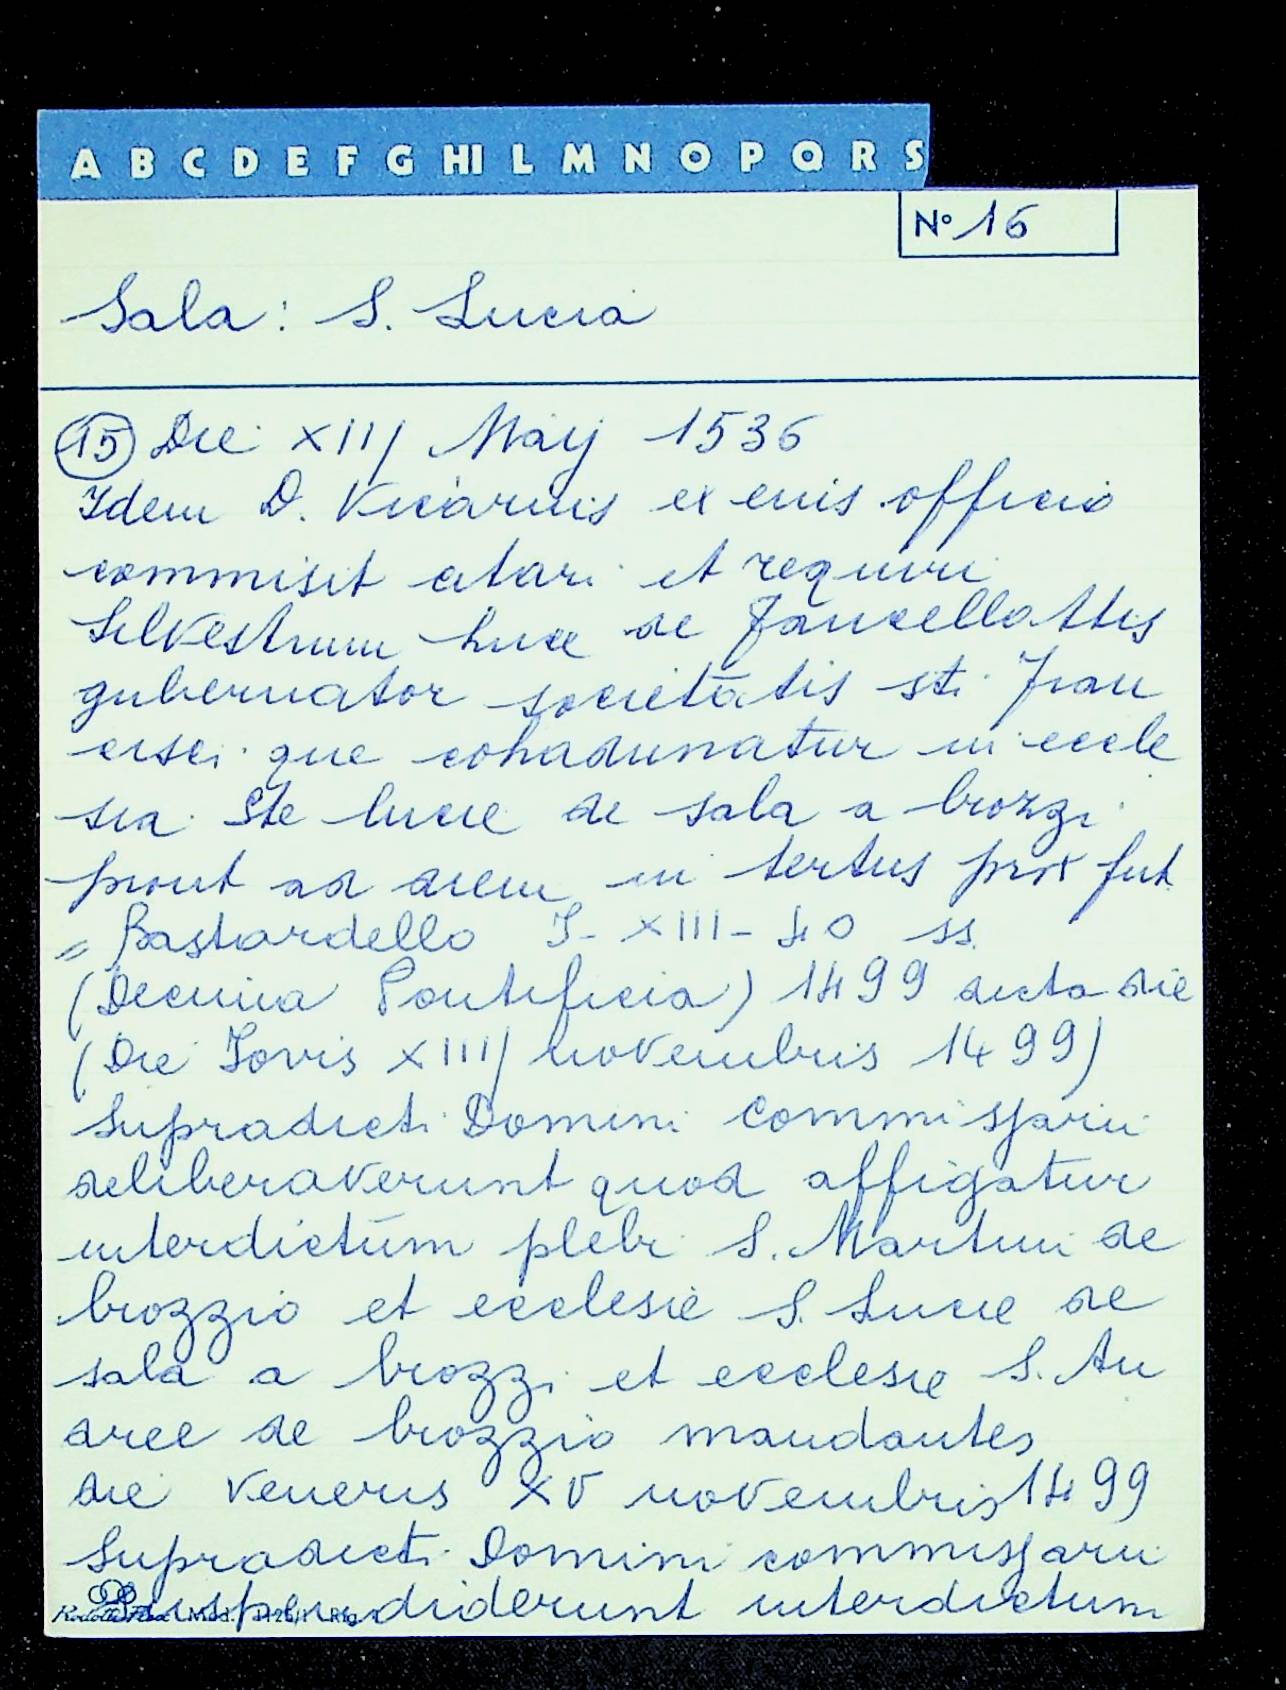 A B C D E F G HI L M N O P Q R S
N° 16
Sala: S. Lucia
15 Die XIIJ Maij 1536
Idem D. Vicarius ex eius officio
commisit citari et requiri
Silvestrum luce de Fancellottis
gubernator societatis sti Fran
cisci que cohadunatur in eccle
sia Ste lucie de sala a brozzi
prout ad diem in tertus prox fut
= Bastardello I - XIII - 40 ss.
(Decima Pontificia) 1499 dicta die
(Die Jovis XIIIJ novembris 1499)
Supradicti Domini Commissarii
deliberaverunt quod affigatur
interdictum plebi S. Martini de
brozzio et ecclesie S. Lucie de
sala a brozzi et ecclesie S. An
dree de brozzio mandantes
die veneris XV novembris 1499
Supradicti Domini commissarii
suspendiderunt interdictum